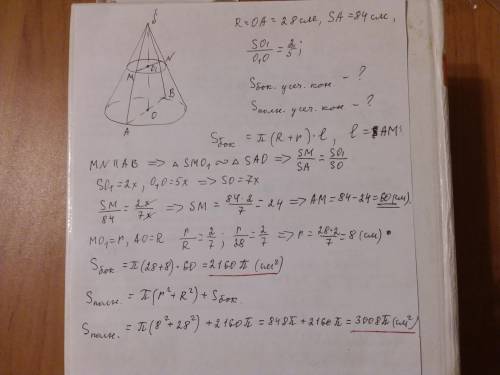 S
R = OA = 28 см, SA = 84 см,
SO₁/O₁O = 2/5;
M O₁ N
B
A O
Sбок. усеч. кон. - ?
Sполн. усеч. кон. - ?
Sбок = π(R + r)·l, l = AM
MN ∥ AB => △SMO₁ ∾ △SAO => SM/SA = SO₁/SO
SO₁ = 2x, O₁O = 5x => SO = 7x
SM/84 = 2x/7x => SM = 84·2/7 = 24 => AM = 84 - 24 = 60 (см).
MO₁ = r, AO = R r/R = 2/7; r/28 = 2/7 => r = 28·2/7 = 8 (см)
Sбок = π(28+8)·60 = 2160π (см²)
Sполн. = π(r² + R²) + Sбок.
Sполн. = π(8² + 28²) + 2160π = 848π + 2160π = 3008π (см²)